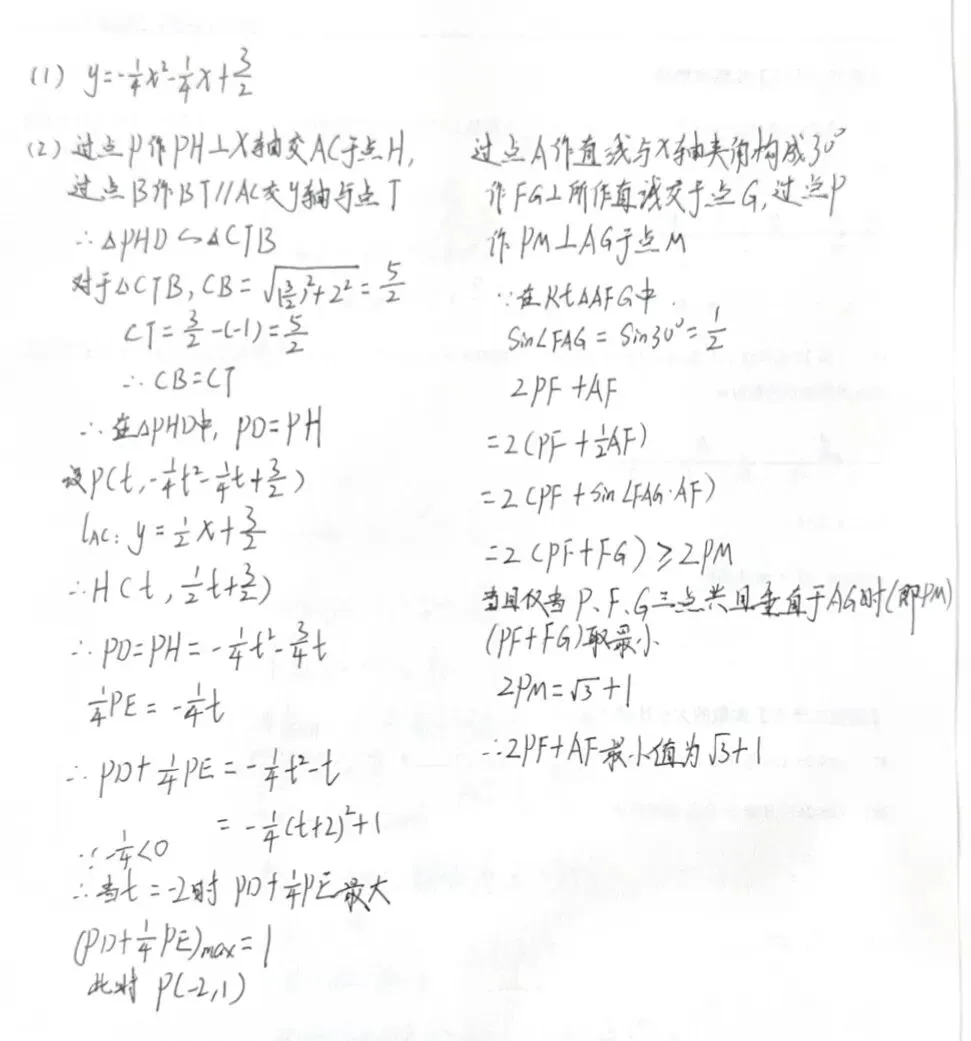 (1) y=-1/4x²-1/4x+3/2
(2) 过点P作PH⊥X轴交AC于点H,
过点B作BT//AC交y轴与点T
∴△PHD∽△CTB
对于△CTB, CB=√((3/2)²+2²)=5/2
CT=3/2-(-1)=5/2
∴CB=CT
∴在△PHD中, PD=PH
设P(t,-1/4t²-1/4t+3/2)
lAC: y=1/2x+3/2
∴H(t, 1/2t+3/2)
∴PD=PH=-1/4t²-3/4t
1/4PE=-1/4t
∴PD+1/4PE=-1/4t²-t
=-1/4(t+2)²+1
∵-1/4<0
∴当t=-2时 PD+1/4PE最大
(PD+1/4PE)max=1
此时 P(-2,1)
过点A作直线与X轴夹角构成30°
作FG⊥所作直线交于点G,过点P
作PM⊥AG于点M
∵在Rt△AFG中
Sin∠FAG=Sin30°=1/2
2PF+AF
=2(PF+1/2AF)
=2(PF+Sin∠FAG·AF)
=2(PF+FG)≥2PM
当且仅当P、F、G三点共且垂直于AG时(即PM)
(PF+FG)取最小
2PM=√3+1
∴2PF+AF最小值为√3+1